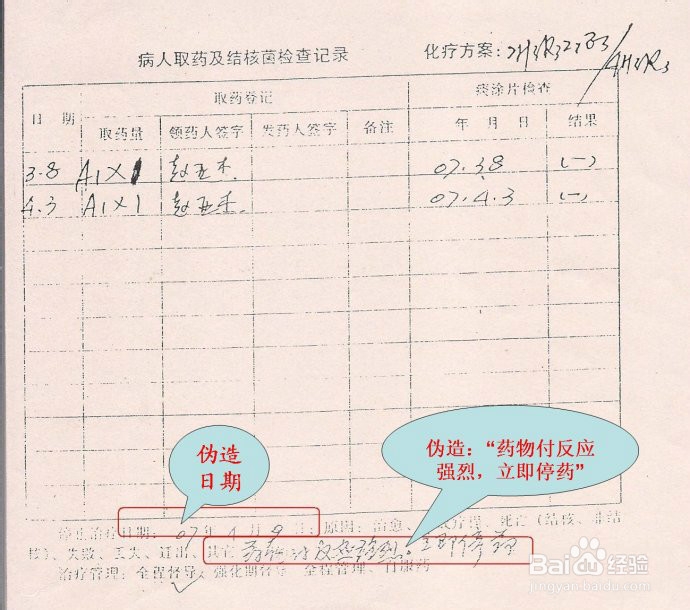 病人取药及结核菌检查记录 化疗方案: 2H3R3Z3E3/4H3R3
日 期 取药登记 痰涂片检查
取药量 领药人签字 发药人签字 备注 年 月 日 结果
3.8 A1×1 07.3.8 (一)
4.3 A1×1 07.4.3 (一)
伪造
日期
伪造:“药物付反应
强烈,立即停药”
停止治疗日期: 07年4月9日;原因:治愈、死亡(结核、非结
核)、失败、丢失、迁出、其它 药物付反应强烈。立即停药
治疗管理:全程督导、强化期督导、全程管理、自服药
Bai 百度 经验
jingyan.baidu.com